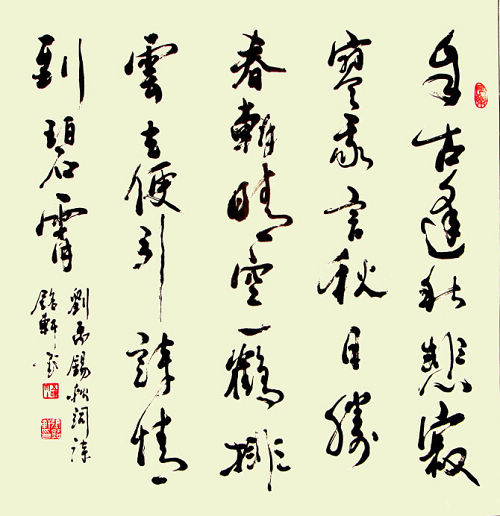 自古逢秋悲寂
寥我言秋日勝
春朝晴空一鶴排
雲上便引詩情
到碧霄
劉禹錫秋詞詩
軒書